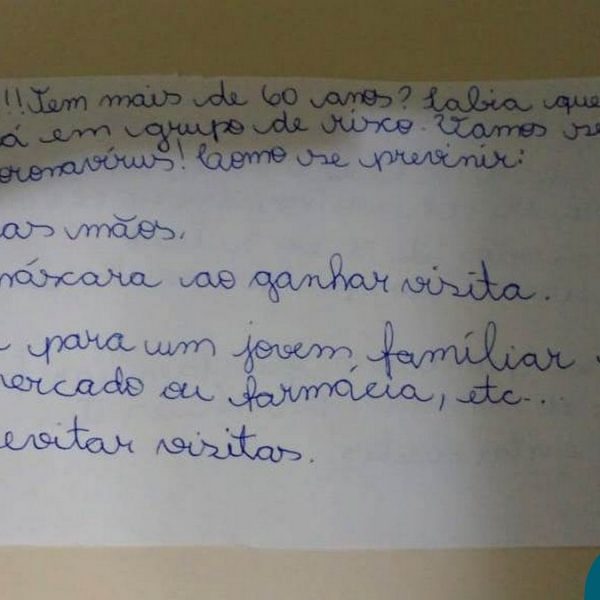 !! Tem mais de 60 anos? Sabia que
á em grupo de risco. Vamos se
oronavírus! Como se previnir:
as mãos.
máscara ao ganhar visita.
para um jovem famíliar
mercado ou farmácia, etc...
evitar visitas.